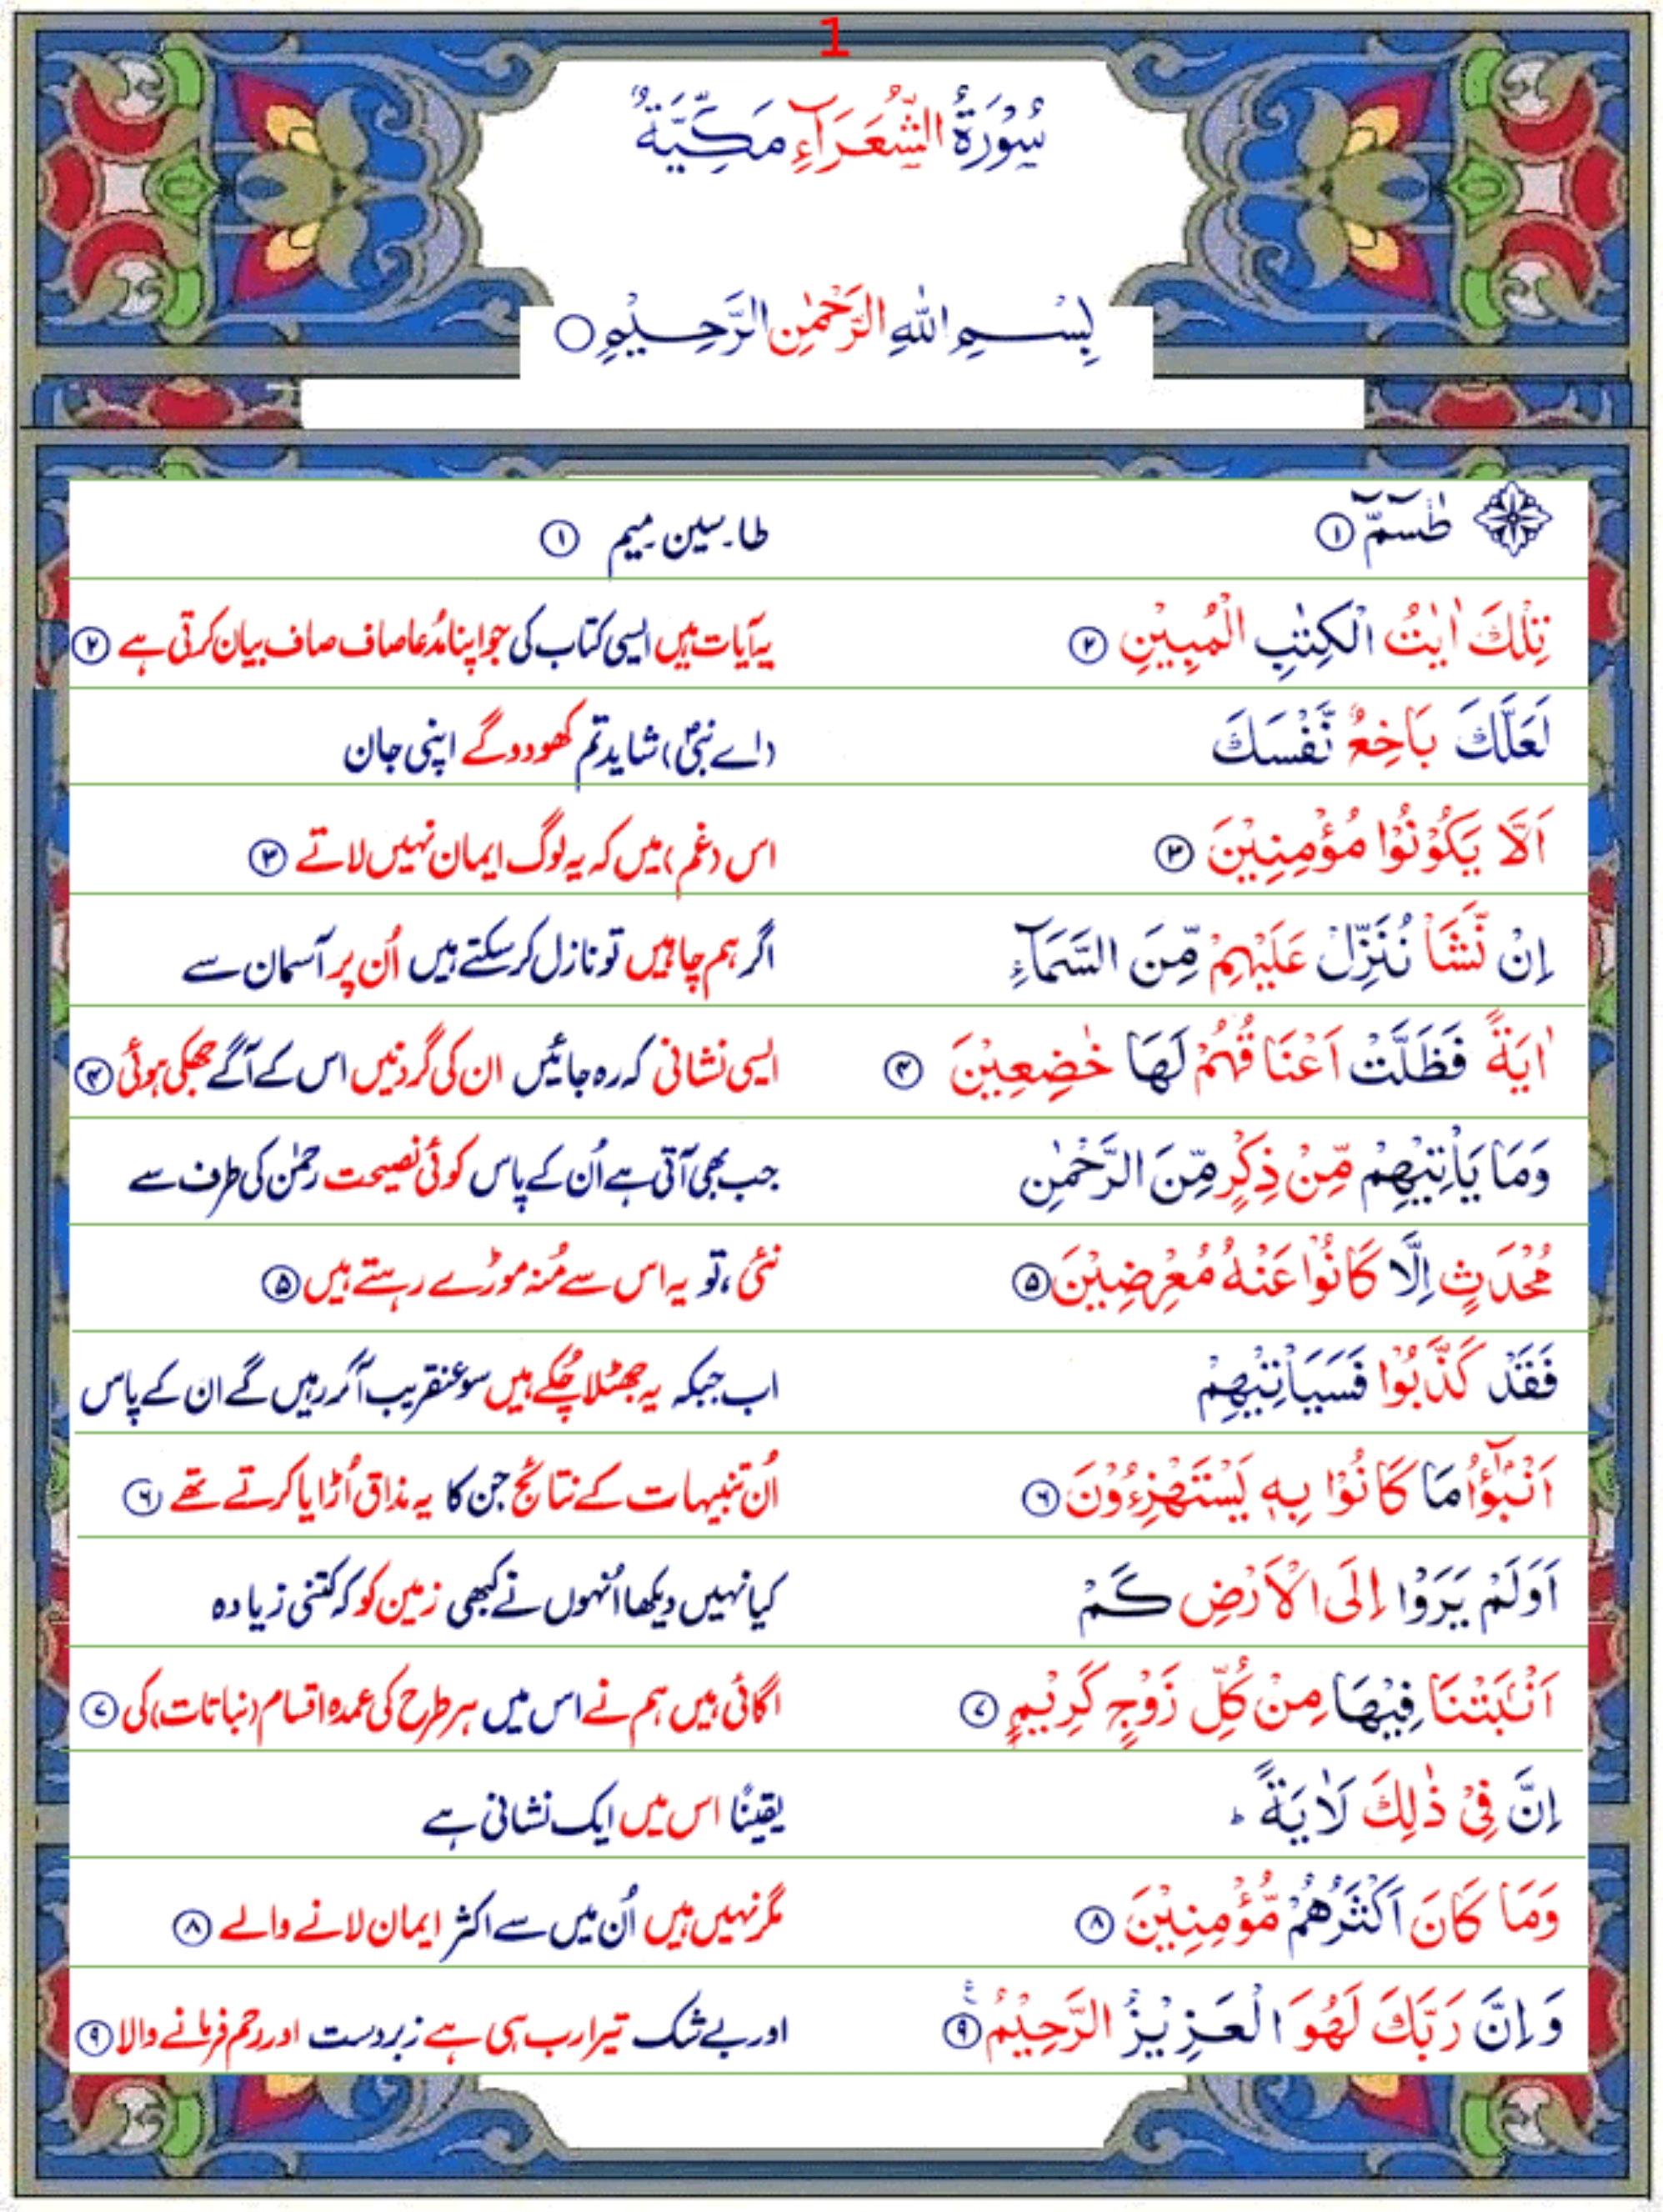 1
سُوْرَةُ الشُّعَرَآءِ مَكِّيَّةٌ
بِسْمِ اللّٰهِ الرَّحْمٰنِ الرَّحِيْمِ ○
طٰسٓمّٓ ۝۱ طا۔سین۔میم ۝۱
تِلْكَ اٰيٰتُ الْكِتٰبِ الْمُبِيْنِ ۝۲ یہ آیات ہیں ایسی کتاب کی جو اپنا مُدعا صاف صاف بیان کرتی ہے ۝۲
لَعَلَّكَ بَاخِعٌ نَّفْسَكَ (اے نبیؐ) شاید تم کھو دو گے اپنی جان
اَلَّا يَكُوْنُوْا مُؤْمِنِيْنَ ۝۳ اس (غم) میں کہ یہ لوگ ایمان نہیں لاتے ۝۳
اِنْ نَّشَاْ نُنَزِّلْ عَلَيْهِمْ مِّنَ السَّمَآءِ اگر ہم چاہیں تو نازل کرسکتے ہیں اُن پر آسمان سے
اٰيَةً فَظَلَّتْ اَعْنَاقُهُمْ لَهَا خٰضِعِيْنَ ۝۴ ایسی نشانی کہ رہ جائیں ان کی گردنیں اس کے آگے جھکی ہوئی ۝۴
وَمَا يَاْتِيْهِمْ مِّنْ ذِكْرٍ مِّنَ الرَّحْمٰنِ جب بھی آتی ہے اُن کے پاس کوئی نصیحت رحمٰن کی طرف سے
مُحْدَثٍ اِلَّا كَانُوْا عَنْهُ مُعْرِضِيْنَ ۝۵ نئی، تو یہ اس سے مُنہ موڑے رہتے ہیں ۝۵
فَقَدْ كَذَّبُوْا فَسَيَاْتِيْهِمْ اب جبکہ یہ جھٹلا چُکے ہیں سو عنقریب آکر رہیں گے ان کے پاس
اَنْۢبٰٓؤُا مَا كَانُوْا بِهٖ يَسْتَهْزِءُوْنَ ۝۶ اُن تنبیہات کے نتائج جن کا یہ مذاق اُڑایا کرتے تھے ۝۶
اَوَلَمْ يَرَوْا اِلَى الْاَرْضِ كَمْ کیا نہیں دیکھا انہوں نے کبھی زمین کو کہ کتنی زیادہ
اَنْۢبَتْنَا فِيْهَا مِنْ كُلِّ زَوْجٍ كَرِيْمٍ ۝۷ اگائی ہیں ہم نے اس میں ہر طرح کی عمدہ اقسام (نباتات) کی ۝۷
اِنَّ فِيْ ذٰلِكَ لَاٰيَةً ؕ یقینًا اس میں ایک نشانی ہے
وَمَا كَانَ اَكْثَرُهُمْ مُّؤْمِنِيْنَ ۝۸ مگر نہیں ہیں اُن میں سے اکثر ایمان لانے والے ۝۸
وَاِنَّ رَبَّكَ لَهُوَ الْعَزِيْزُ الرَّحِيْمُ ۝۹ۧ اور بے شک تیرا رب ہی ہے زبردست اور رحم فرمانے والا ۝۹